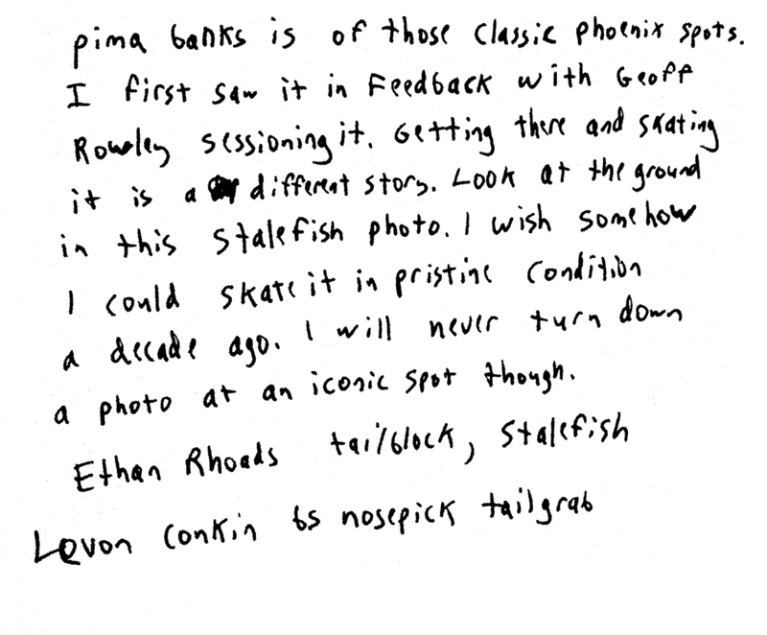 pima banks is of those classic phoenix spots.
I first saw it in Feedback with Geoff
Rowley sessioning it. Getting there and skating
it is a different story. Look at the ground
in this stalefish photo. I wish somehow
I could skate it in pristine condition
a decade ago. I will never turn down
a photo at an iconic spot though.
Ethan Rhoads tailblock, stalefish
Levon Conkin bs nosepick tailgrab